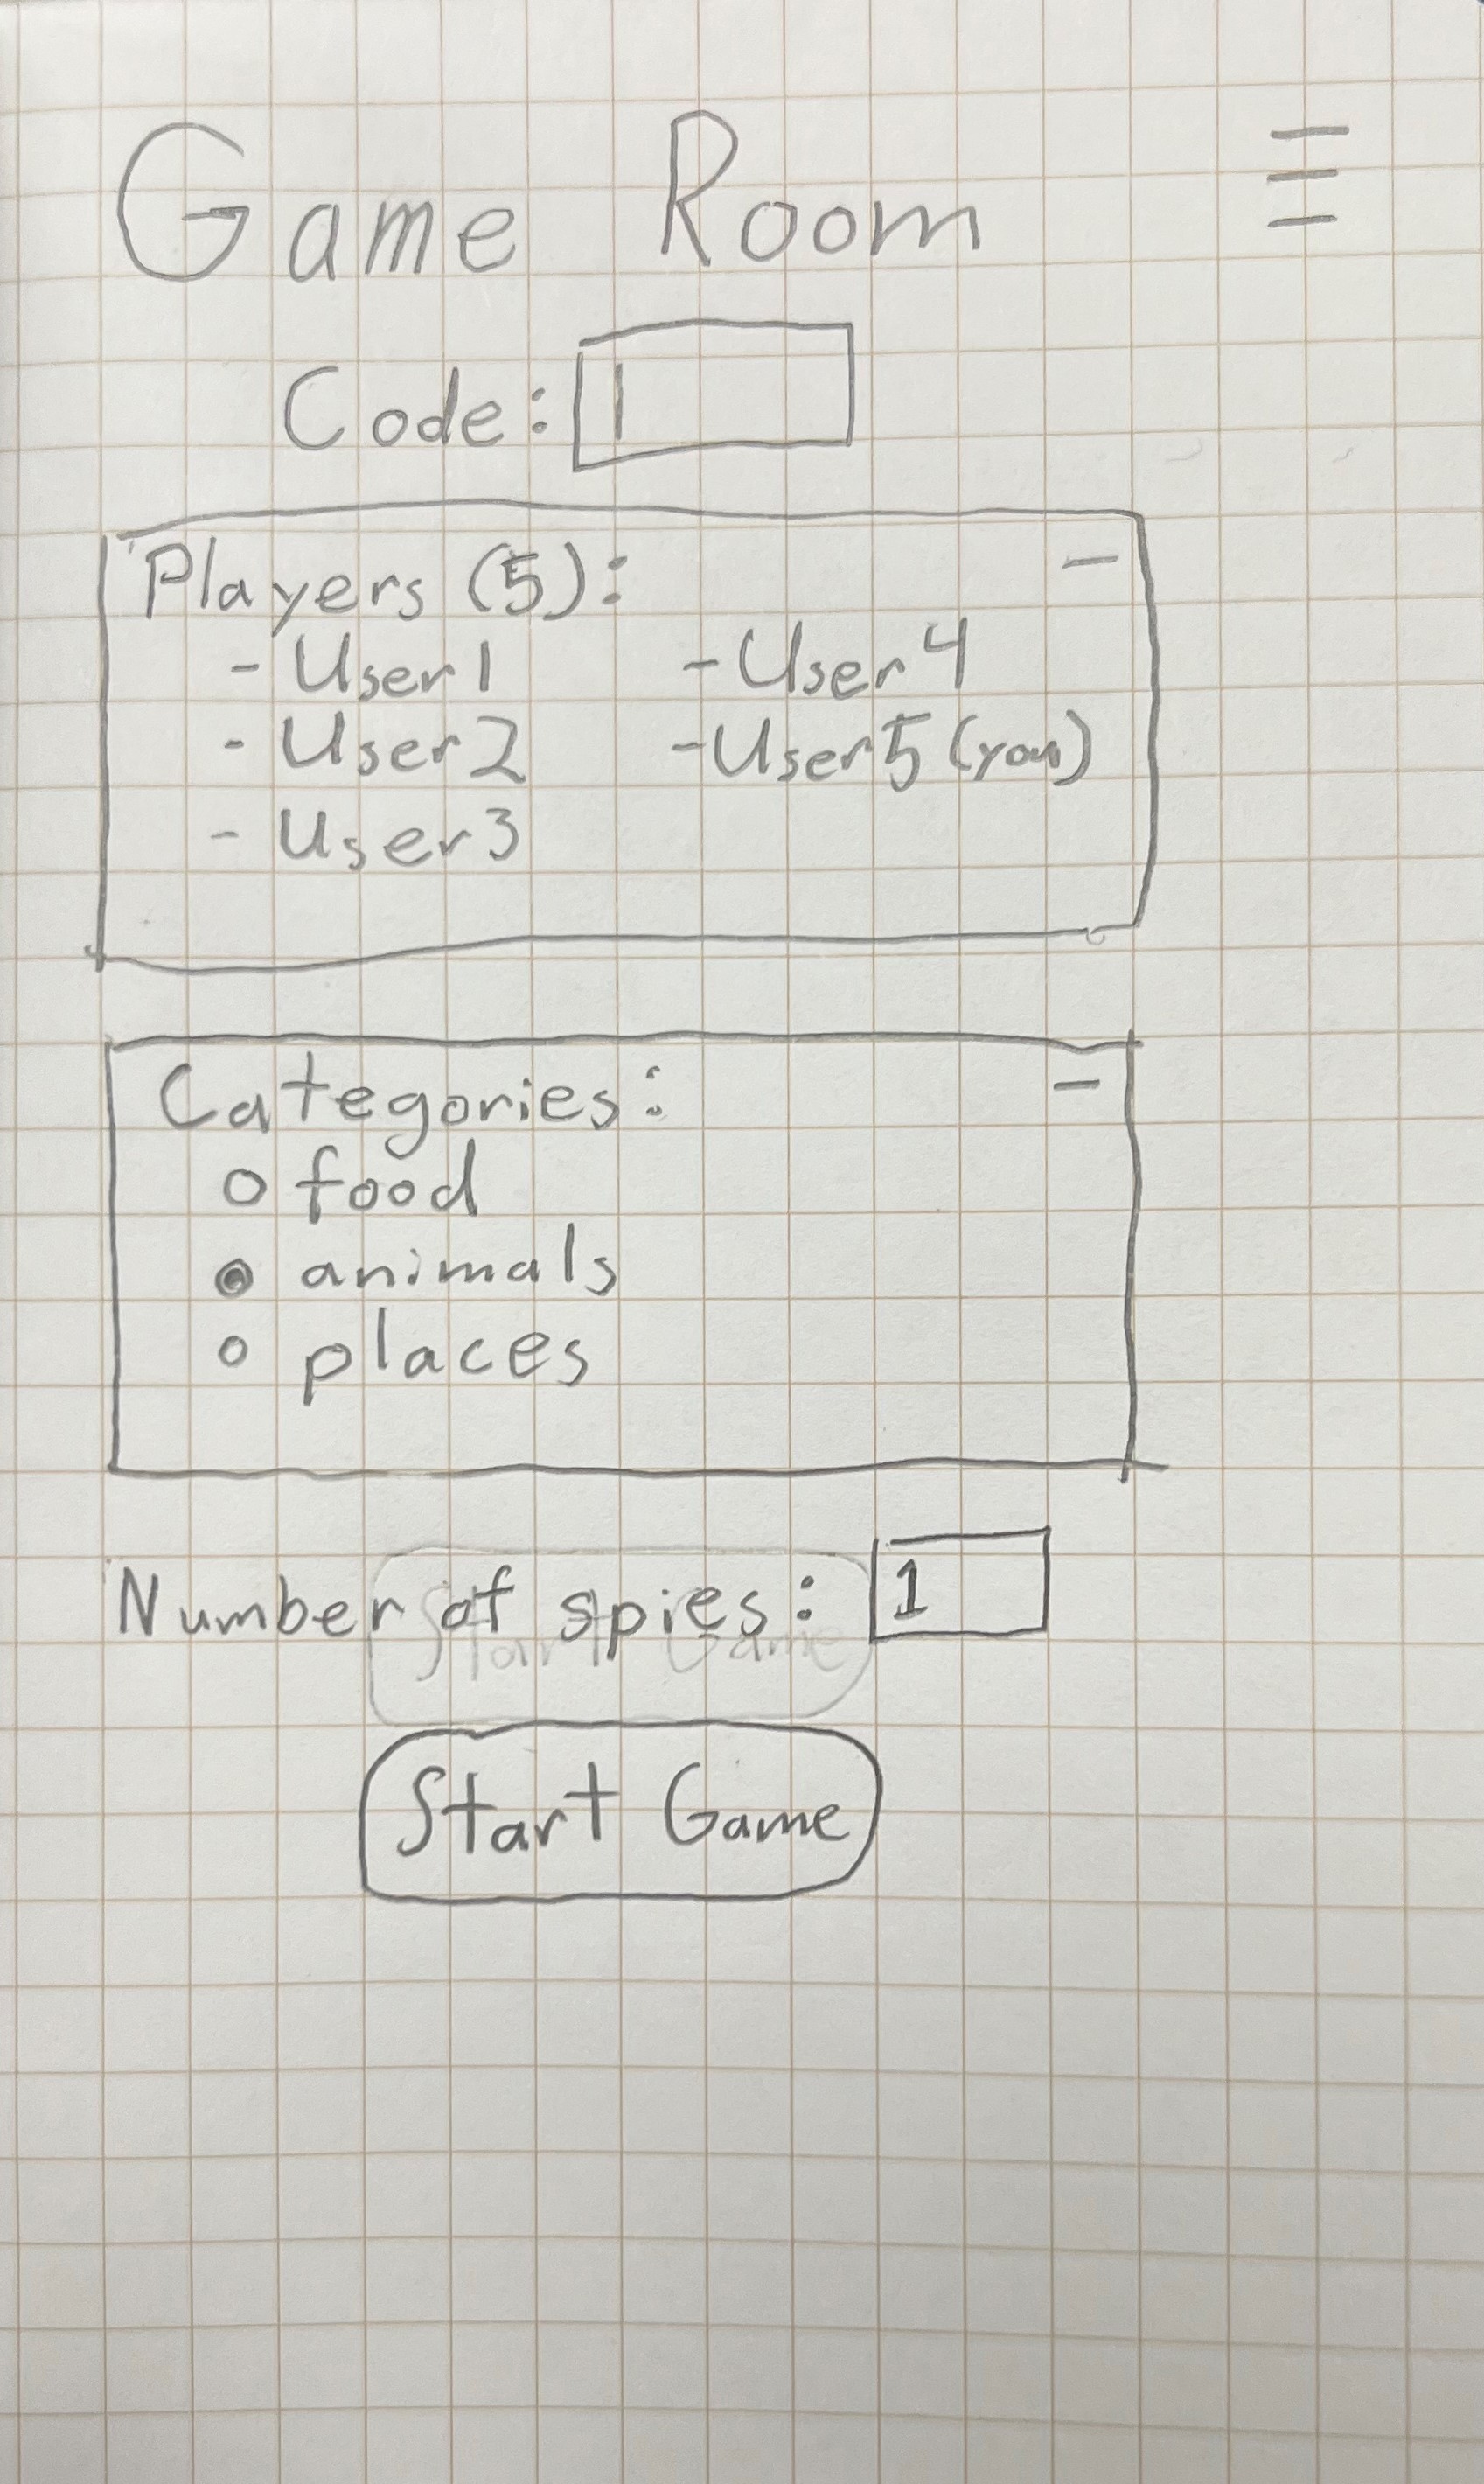 Game Room
Code:
Players (5):
- User1
- User2
- User3
- User4
- User5 (you)
Categories:
food
animals
places
Number of spies: 1
Start Game
Start Game